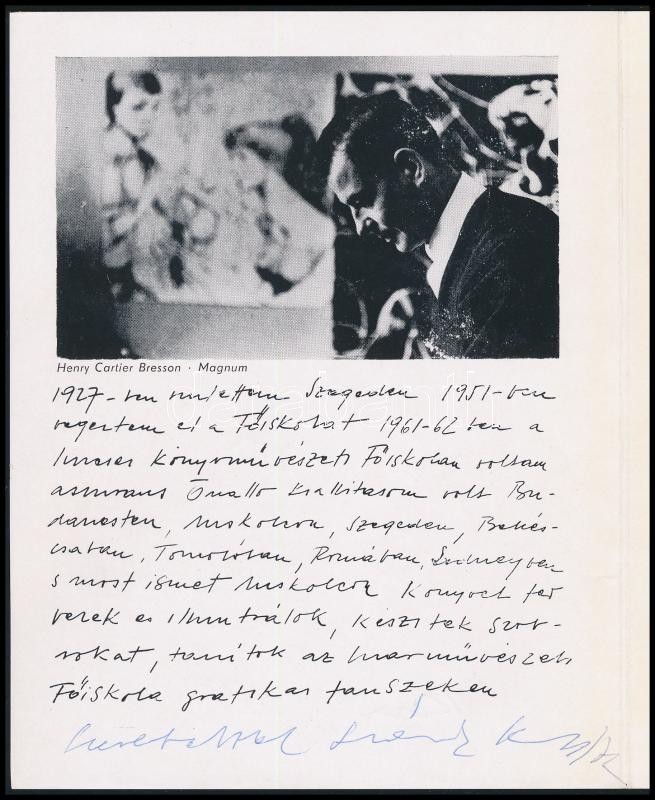 Henry Cartier Bresson · Magnum
1927-ben születtem Szegeden 1951-ben
vegeztem el a Főiskolát 1961-62 ben a
lipcsei Könyvművészeti Főiskolan voltam
aspirans Önallo kiallitasom volt Bu-
dapesten, Miskolcon, Szegeden, Bekés-
csaban, Romában, Sidneyben
s most ismet Miskolcon Konyvet ter
vezek es illusztrálok, készitek szob-
rokat, tanítok az Iparművészeti
Főiskola grafikai tanszeken
szeretettel